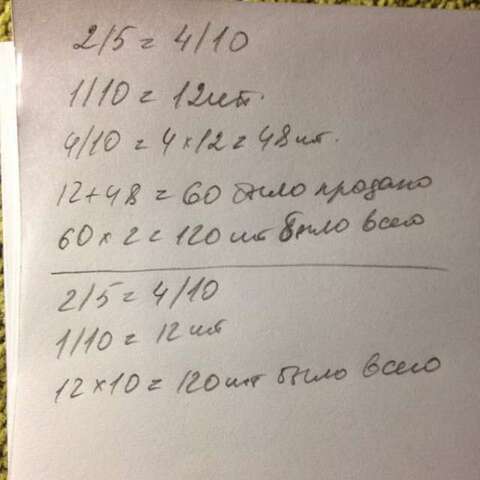 2/5 = 4/10
1/10 = 12шт.
4/10 = 4×12 = 48шт.
12+48 = 60 было продано
60×2 = 120 шт было всего
2/5 = 4/10
1/10 = 12шт
12×10 = 120шт было всего